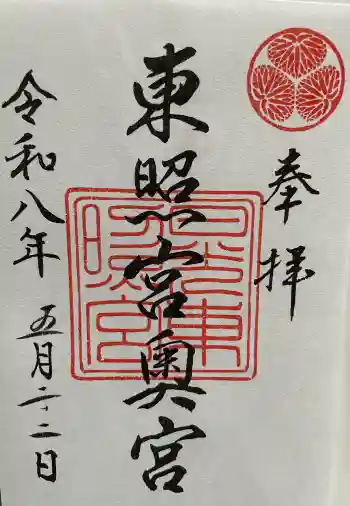 奉拝
東照宮奥宮
令和八年 五月二十二日